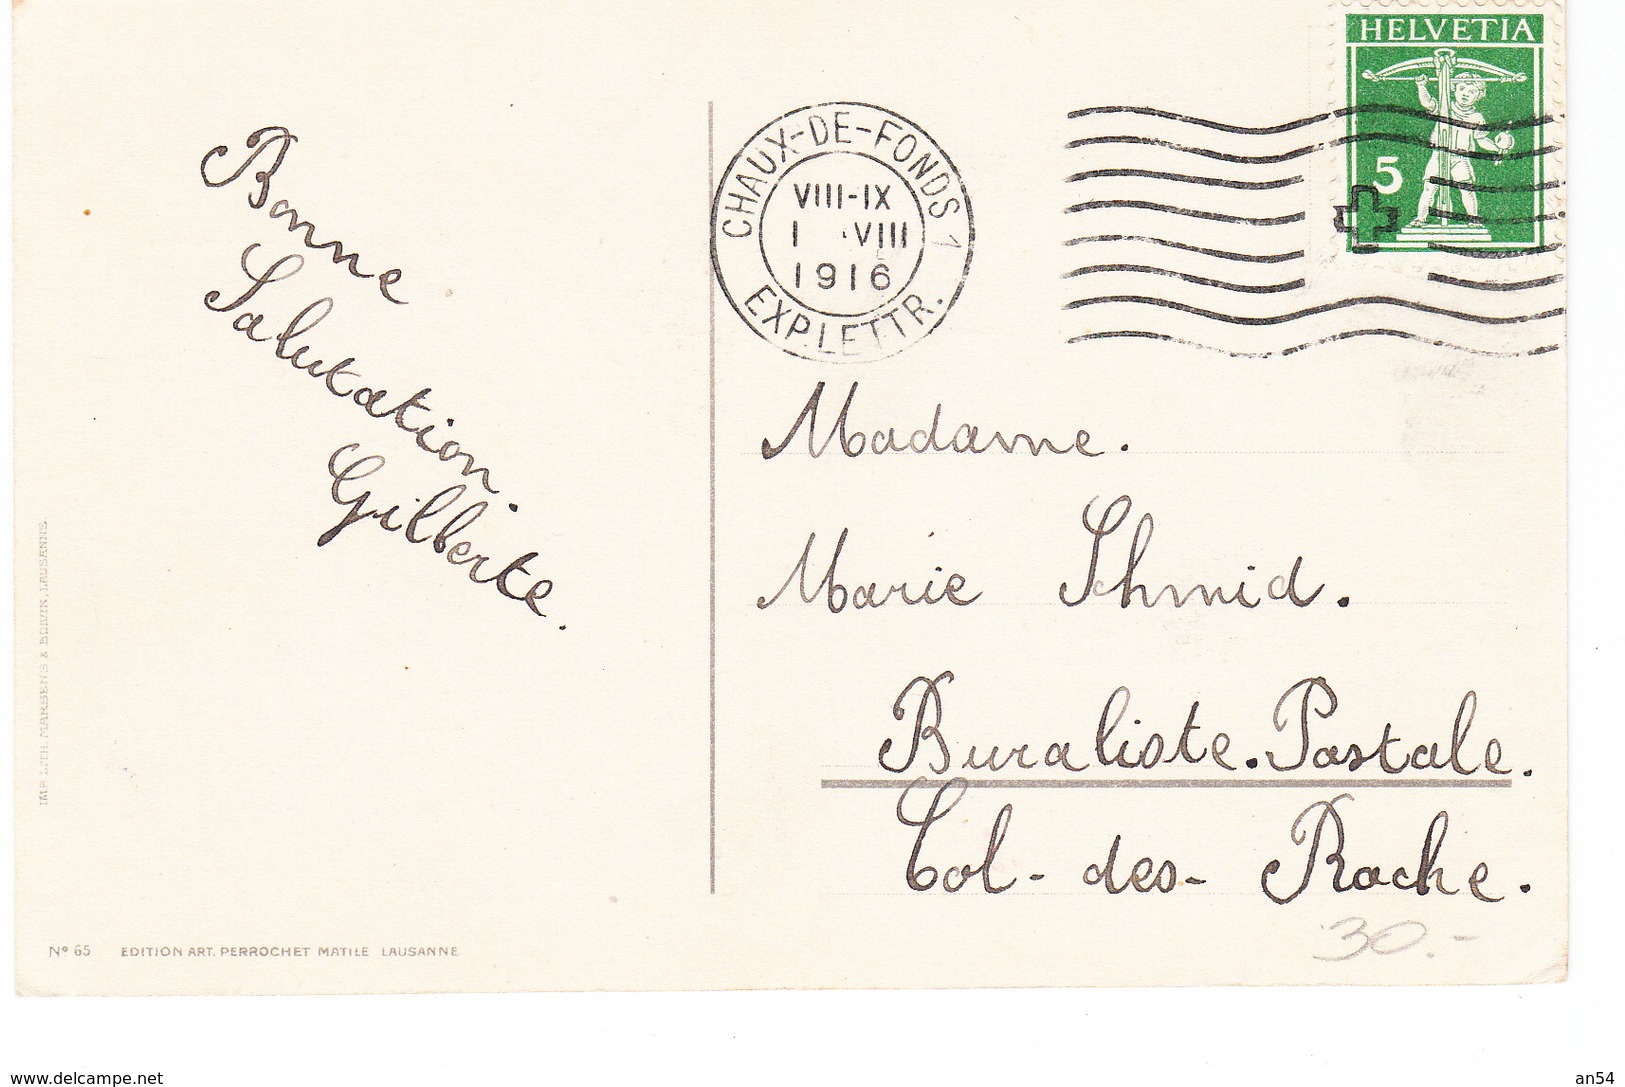 HELVETIA
5
CHAUX-DE-FONDS 1
VIII-IX
1 ·VIII
1916
EXP. LETTR.
Bonne
Salutation.
Gilberte.
Madame.
Marie Schmid.
Buraliste. Postale.
Col-des-Roche.
30.-
Nº 65 EDITION ART. PERROCHET MATILE LAUSANNE
www.delcampe.net
an54